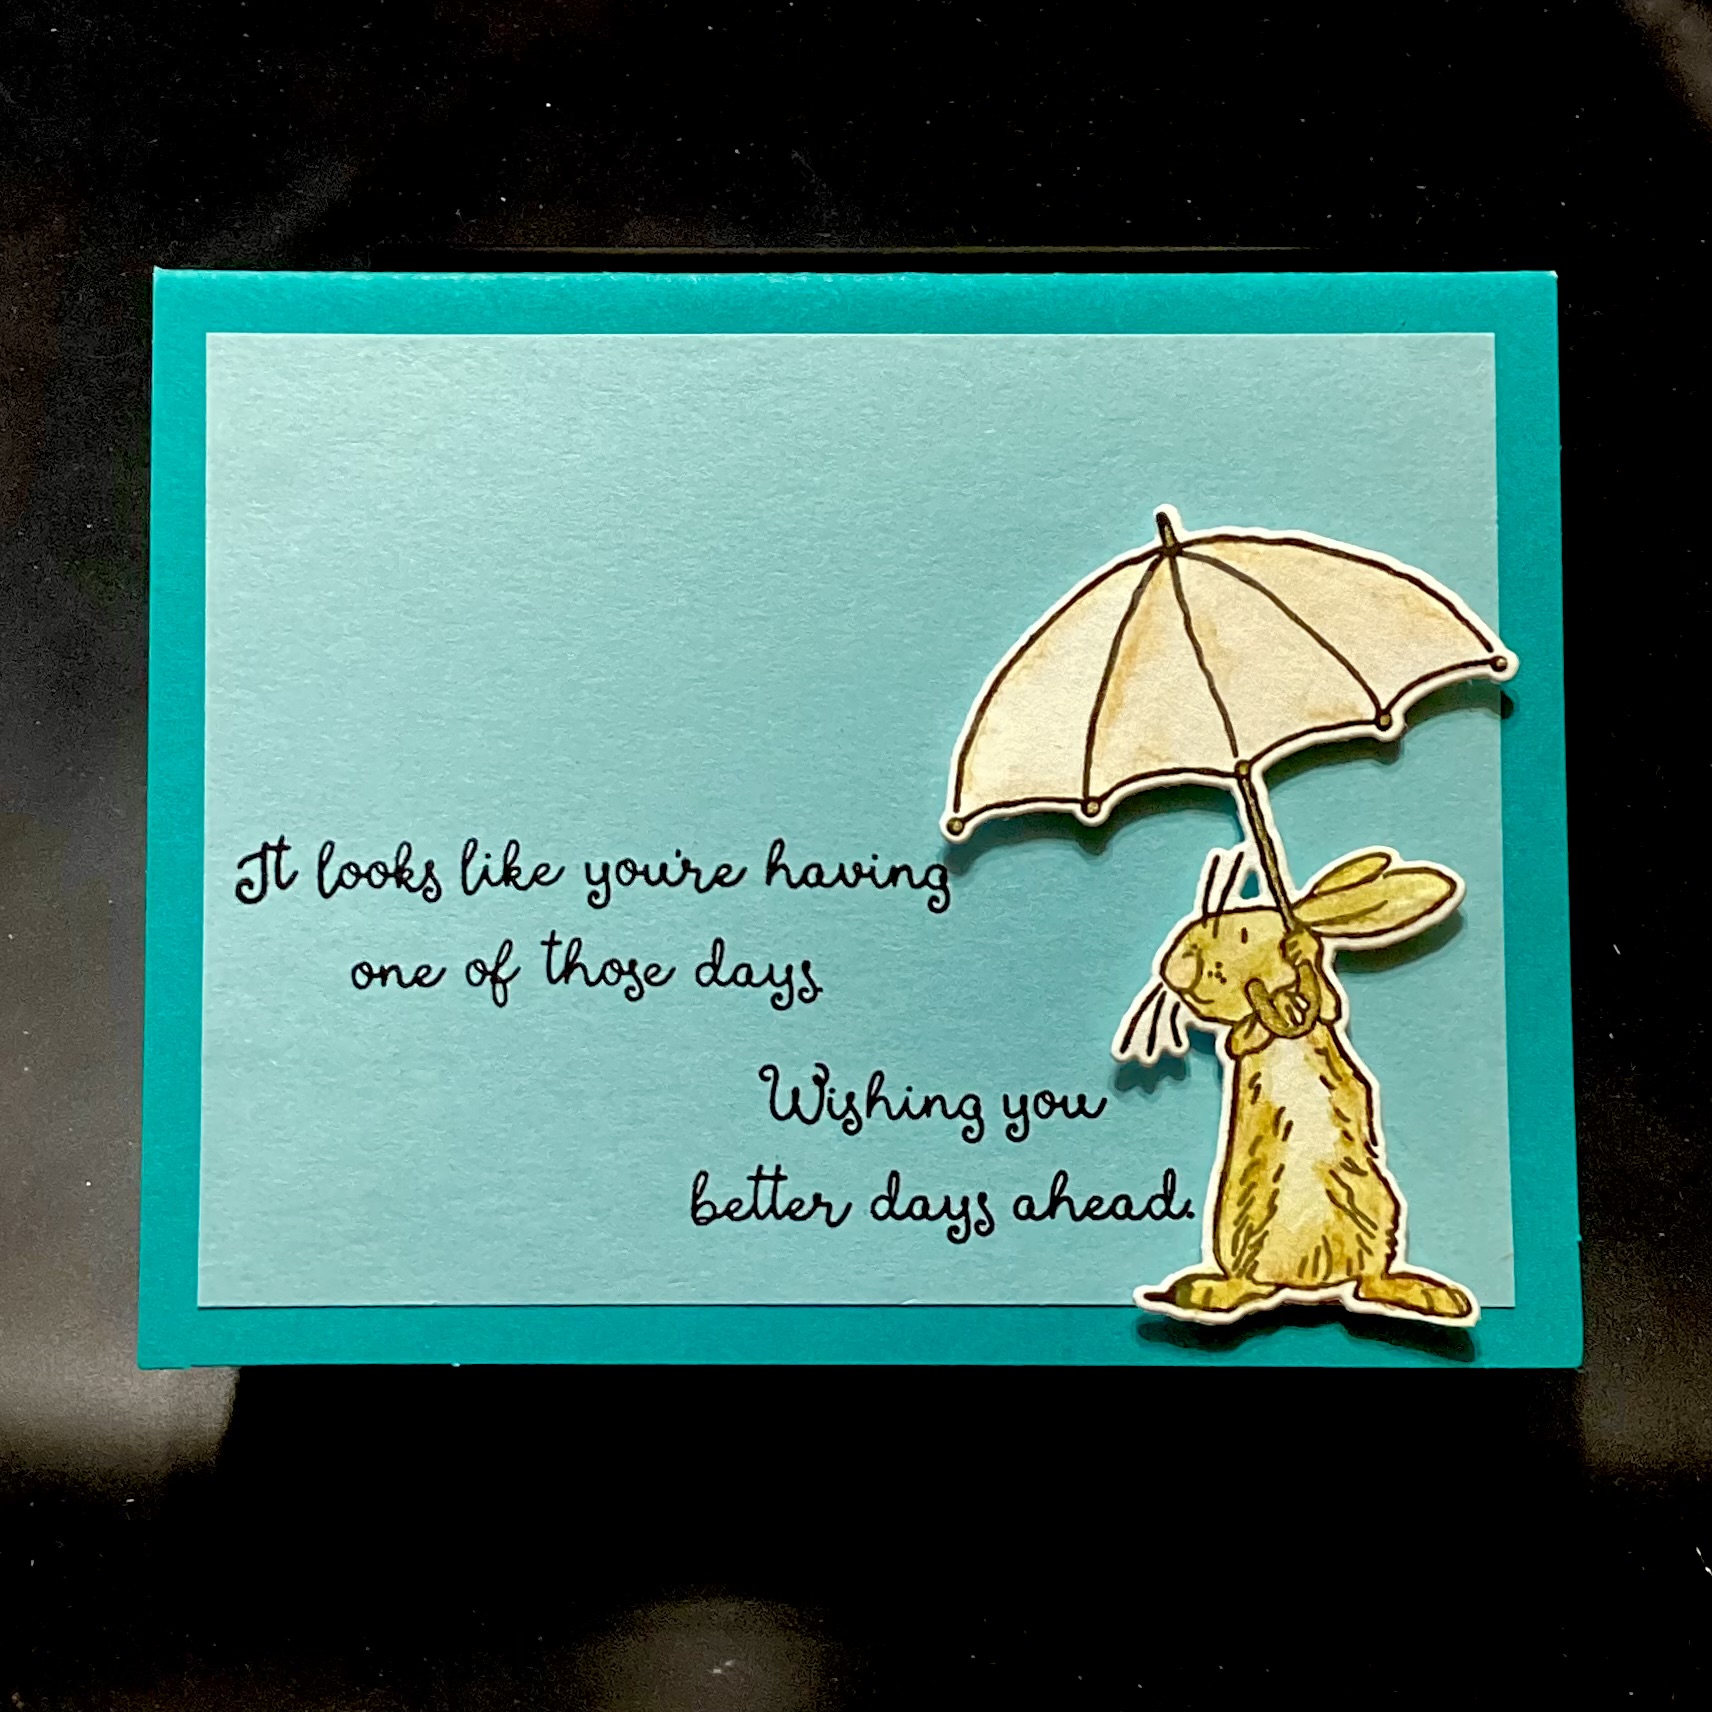 It looks like you're having
one of those days.
Wishing you
better days ahead.